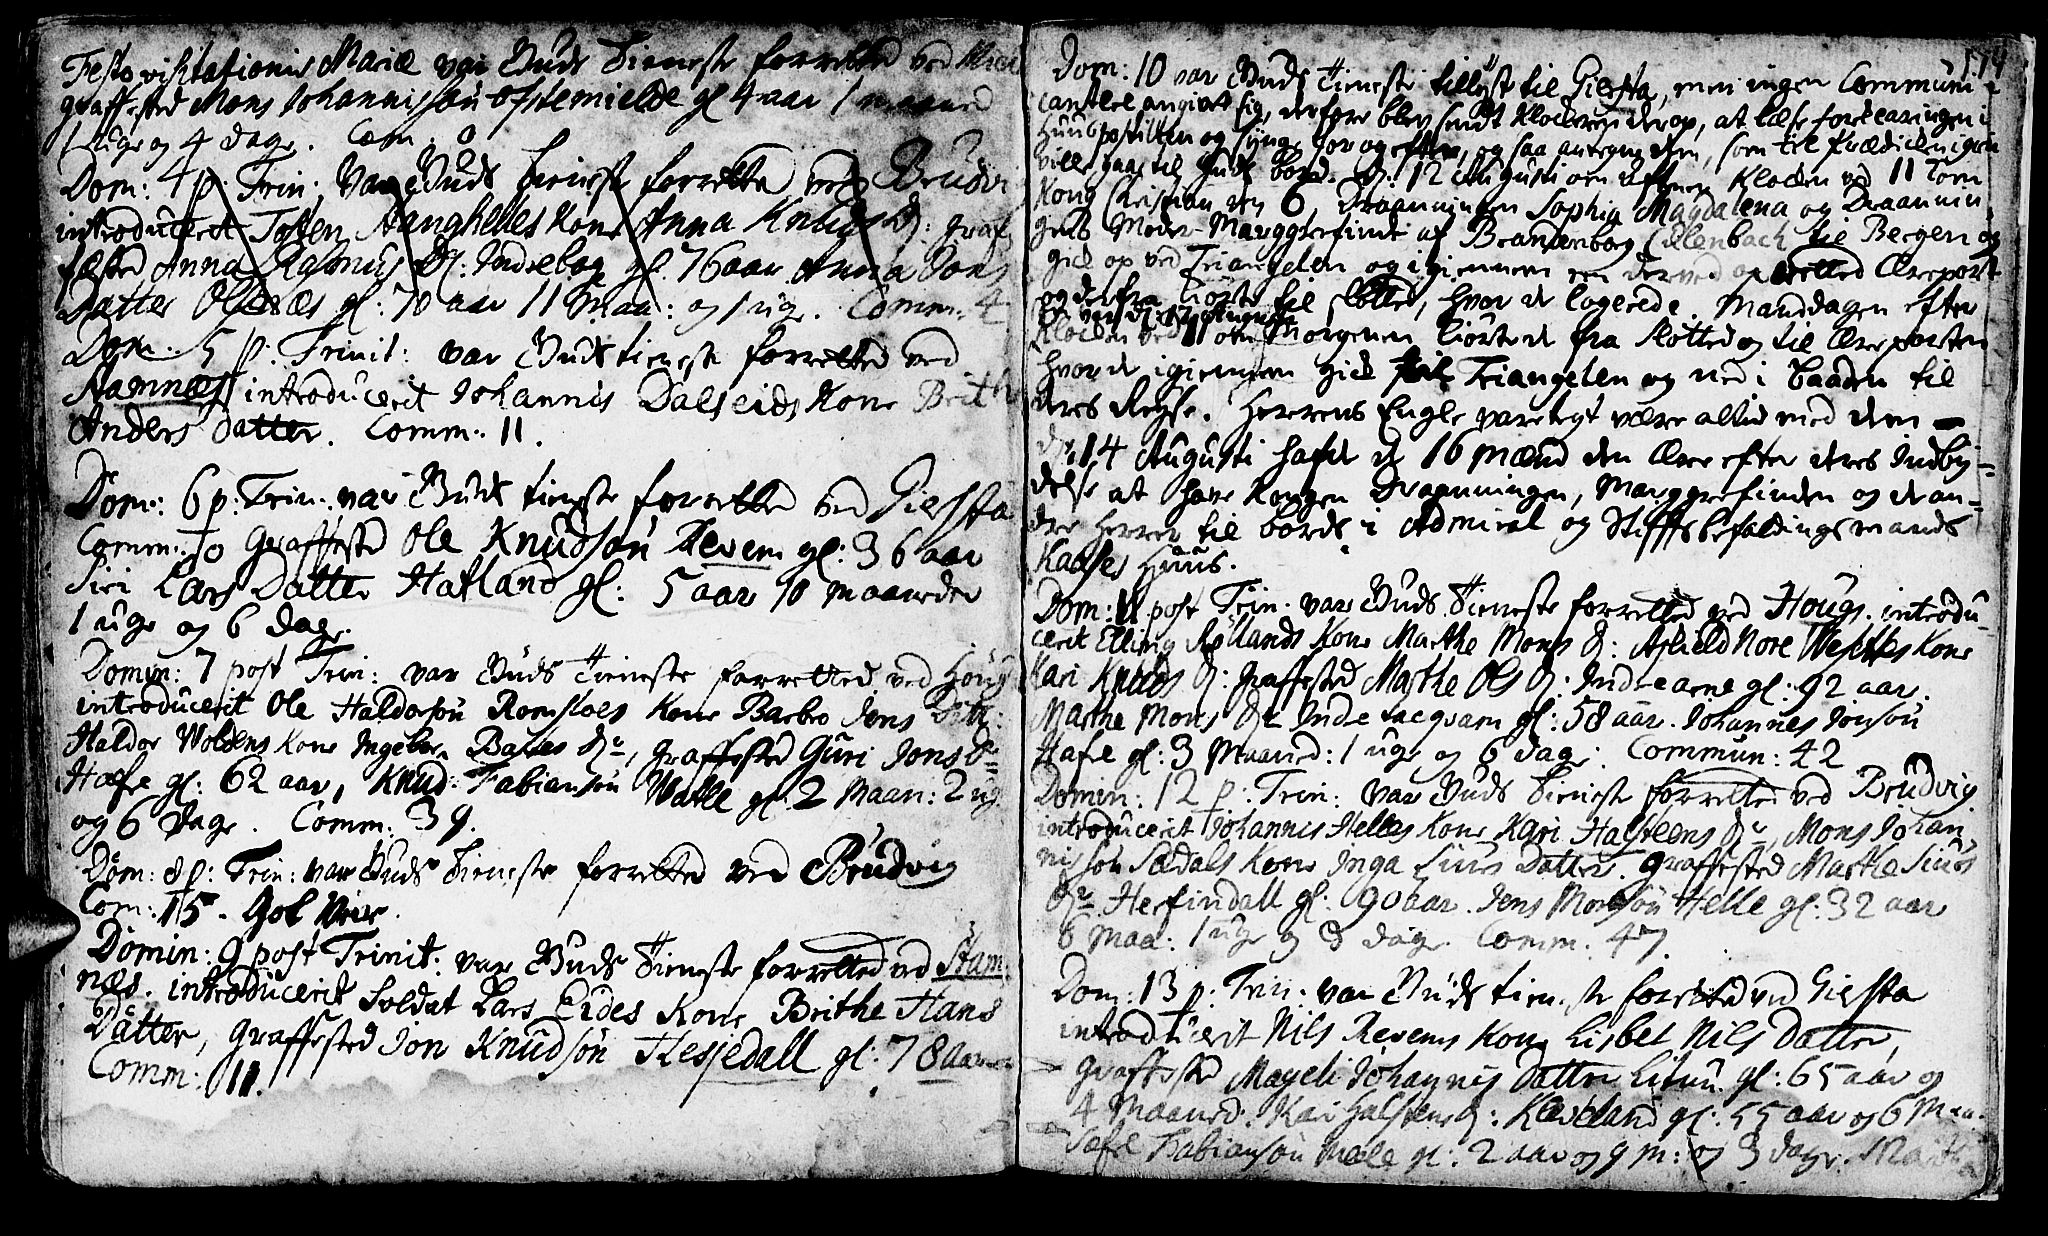 Festo visitationis Mariæ var Guds Tieneste forretted ved
graffested Mons Johannissøn Østemielde gl 4 aar 1 maaned
1 uge og 4 dage. Com: 0
Dom: 4 p: Trin: var Guds Tieneste forretted ved Brudvi
introducerit Tosten Aanghelles Kone Anna Knuds D: graf
fested Anna Rasmus D: Indrebog gl: 76 aar Anna Jons
Datter Olsnæs gl: 70 aar 11 maa: og 1 uge. Comm: 4
Dom: 5 p: Trinit: var Guds tieneste forretted ved
Stamnæs introducerit Johannis Dalseids Kone Brithe
Anders Datter. Comm: 11.
Dom: 6 p: Trin: var Guds tieneste forretted ved Giersta
Comm: 70 Graffested Ole Knudsøn Revem gl: 36 aar
Siri Lars Datter Hatland gl: 5 aar 10 maaneder
1 uge og 6 dage.
Domin: 7 post Trin: var Guds Tieneste forretted ved Houg
introducerit Ole Haldorsøn Romsloes Kone Barbro Jens Datt:
Haldor Woldens Kone Ingebor Baars Dr, graffested Guri Jons Dr
Hæfre gl: 62 aar, Knud Fabiansøn Walle gl: 2 Maan: 2 ug
og 6 Dage. Comm: 39.
Dom: 8 p: Trin: var Guds Tieneste forretted ved Brudvig
Com: 15.
Domin: 9 post Trinit: var Guds Tieneste forretted ved Stam
næs. introducerit Soldat Lars Eides Kone Brithe Hans
Datter, graffested Jon Knudsøn Hessjedall gl: 78 aar
Comm: 11.
Dom: 10 var Guds Tieneste tillyst til Giersta, men ingen Communi
cantere angivet sig, derfore blev sendt Klockeren derop, at læse forklaringen i
Huuspostillen og synge for og efter, og saa antegne dem, som til Prædicken igien
ville gaae til Guds bord. d: 12 Augusti om aftenen Klocken ved 11 kom
Kong Christian den 6 Dronningen Sophia Magdalena og Dronnin
gens Moder Marggrefinde af Brandenborg Culenbach til Bergen og
gick op ved Triangelen og igiennem en derved opretted Æreport
og derfra kiørte til Slotted, hvor de logerede. Manddagen efter
Klocken ved 11 om Morgenen kiørte de fra Slotted og til Æreporten
hvor de igiennem gick til Triangelen og ned i baaden til
deres Reyse. Herrens Engle varetegt være altid med dem
d: 14 Augusti hafde de 16 mænd den ære efter deres Indby
delse at have Kongen Dronningen, Marggrefinden og de an
dre Herrer til bords i Admiral og Stiftsbefaldingsmands
Kaases Huus.
Dom: 11 post Trin: var Guds Tieneste forretted ved Hougs. introdu
cerit Elling Røllands Kone Marthe Mons D: Ashield Nore Kone
Kari Knuds D: graffested Marthe Ols D: Indrearne gl: 92 aar.
Marthe Mons Dr Indre gl: 58 aar. Johannes Jonsøn
Hafre gl: 3 Maaned: 1 uge og 6 Dage. Commun: 42
Domin: 12 p: Trin: var Guds Tieneste forretted ved Brudvig
introducerit Johannis Helles Kone Kari Halsteens Dr, Mons Johan
nissøn Sædals Kone Inga Siurs Datter. graffested Marthe Siurs
Dr Herfindall gl: 90 aar. Jens Monsøn Helle gl: 32 aar
6 Maa: 1 uge og 3 dage. Comm: 47
Dom: 13 p: Trin: var Guds tieneste forretted ved Giersta
introducerit Nils Revems Kone Lisbet Nils Datter,
graffested Mageli Johannis Datter gl: 65 aar og
4 Maaned: Kari Halstens D: Kleveland gl: 55 aar og 6 Maa.
Fabiansøn gl: 2 aar og 9 m: og 3 dage.